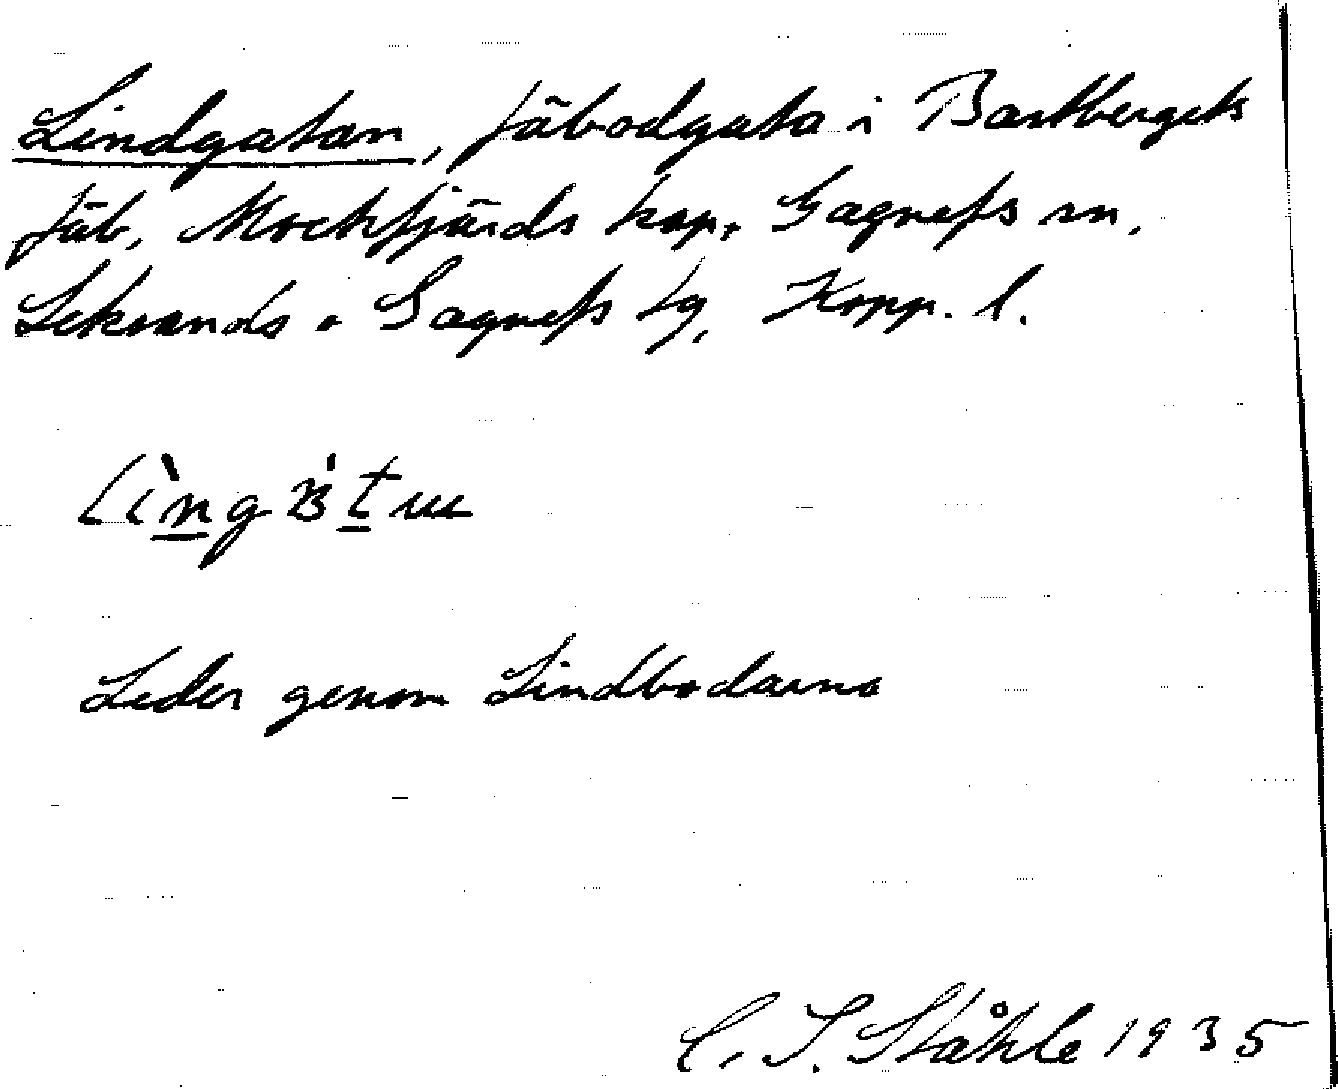 Lindgatan, fäbodgata i Bastbergets
fäb. Mockfjärds kap. Gagnefs sn.
Leksands o Gagnefs tg, Kopp. l.
Leder genom Lindbodarna
C. I. Ståhle 1935